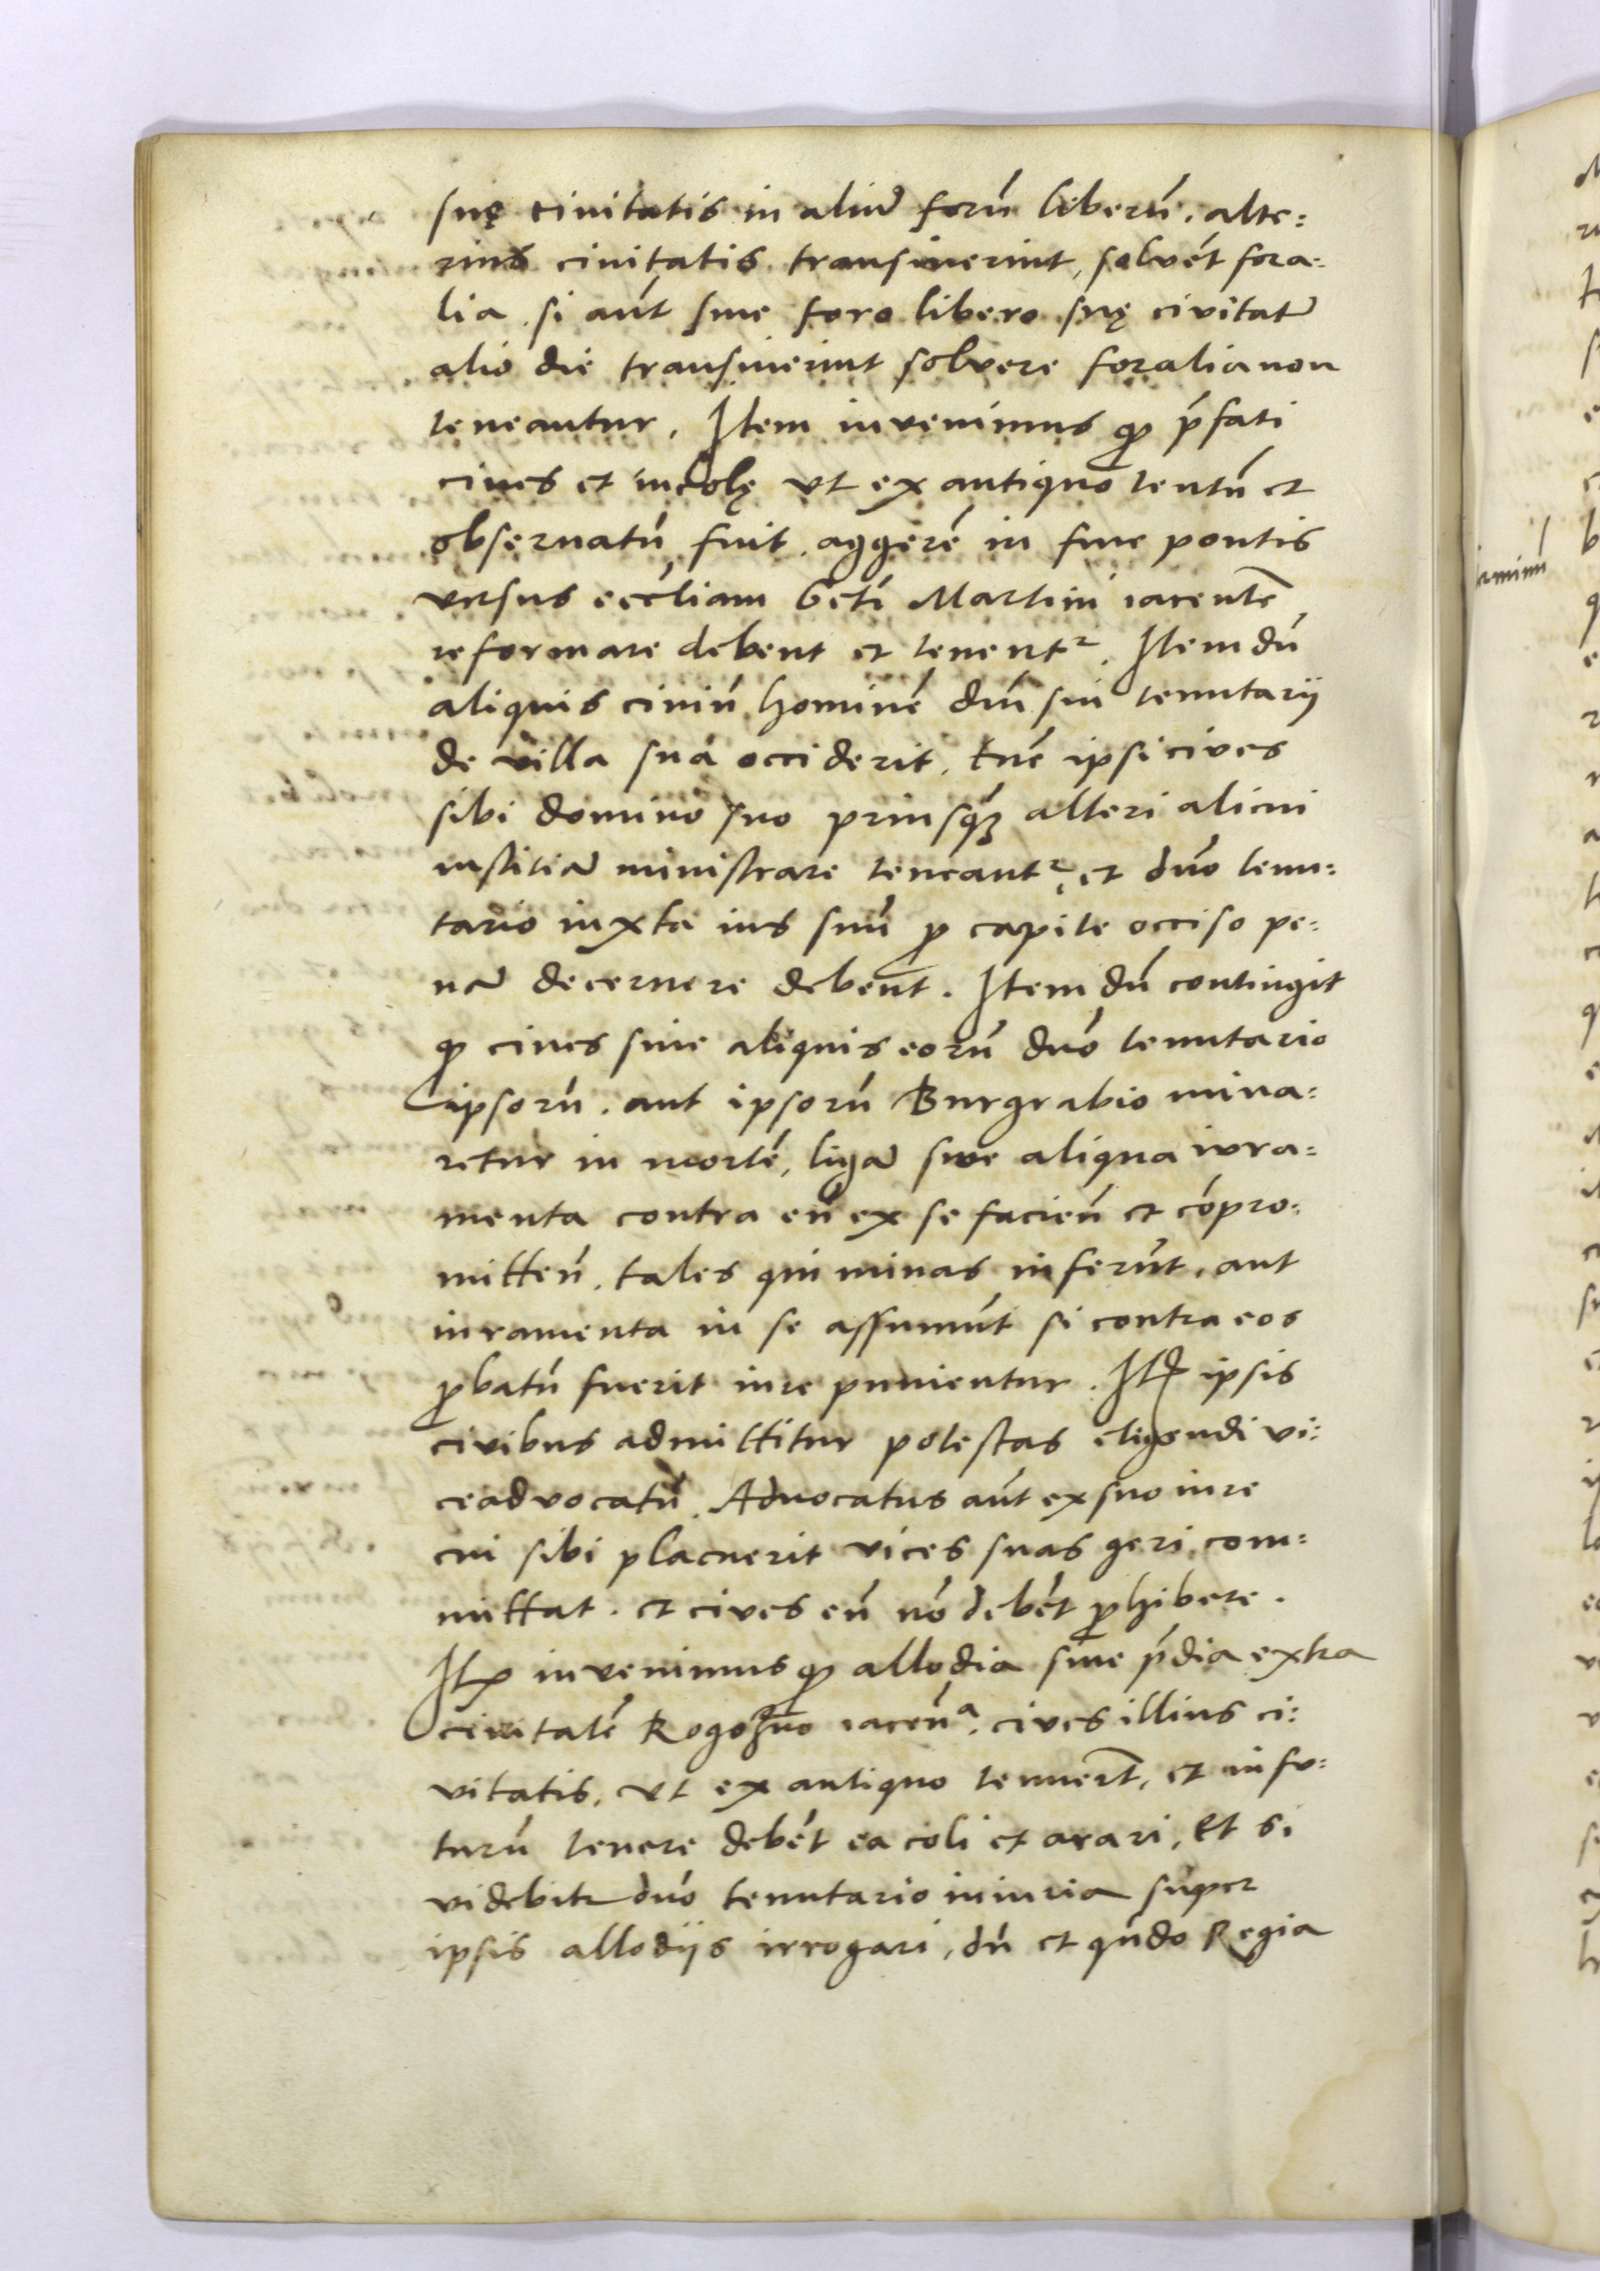 suę ciuitatis in aliũ forũ liberũ, alte:
rius ciuitatis transiuerint, solvẽt fora:
lia. si aũt sine foro libero suę civitatũ
alio die transiuerint solvere foralia non
teneantur. Item invenimus qͦ p̃fati
ciues et incolę vt ex antiquo tentũ et
obseruatũ fuit. aggerẽ in fine pontis
versus eccĺiam bctĩ Martini iacentẽ
reformare debent et tenentᷣ. Item dũ
aliquis ciuiũ hominẽ dñi sui tenutarij
de villa sua occiderit. tũc ipsi cives
sibi domino suo priusq̃ alteri alicui
iustitiã ministrare teneantᷣ, et dño tenu:
tario iuxta ius suũ ꝓ capite occiso pe:
nã decernere debent. Item dũ contingit
qͦ ciues siue aliquis eorũ dño tenutario
ipsorũ. aut ipsorũ Burgrabio mina:
retur in mortẽ, ligã siue aliqua iura:
menta contra eũ ex se facieñ et cõpro:
mitteñ. tales qui minas inferũt, aut
iuramenta in se assumũt si contra eos
ꝓbatũ fuerit iure punientur. Itẽ ipsis
civibus admittitur potestas eligendi vi:
ceadvocatũ. Aduocatus aũt ex suo iure
cui sibi placuerit vices suas geri com:
mittat. et cives eũ nõ debẽt ꝓhibere.
Itẽ invenimus qͦ allodia siue p̃dia extra
ciuitatẽ Rogozno iaceñᵃ. cives illius ci:
vitatis, vt ex antiquo tenuerũt, et in fu:
turũ tenere debẽt ea coli et arari, Et si
videbitᷣ dño tenutario iniuria super
ipsis allodijs irrogari, dũ et qñdo Regia